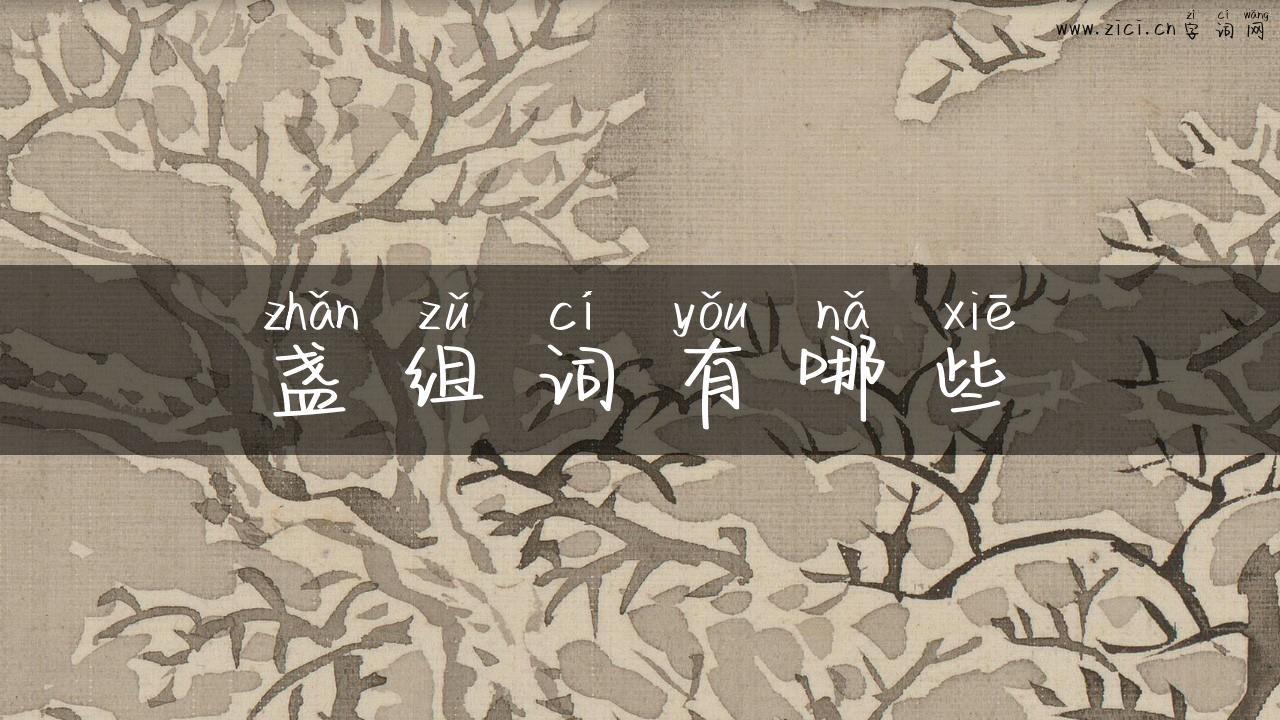 zì cí wǎng
www.zici.cn字词网
zhǎn zǔ cí yǒu nǎ xiē
盏组词有哪些